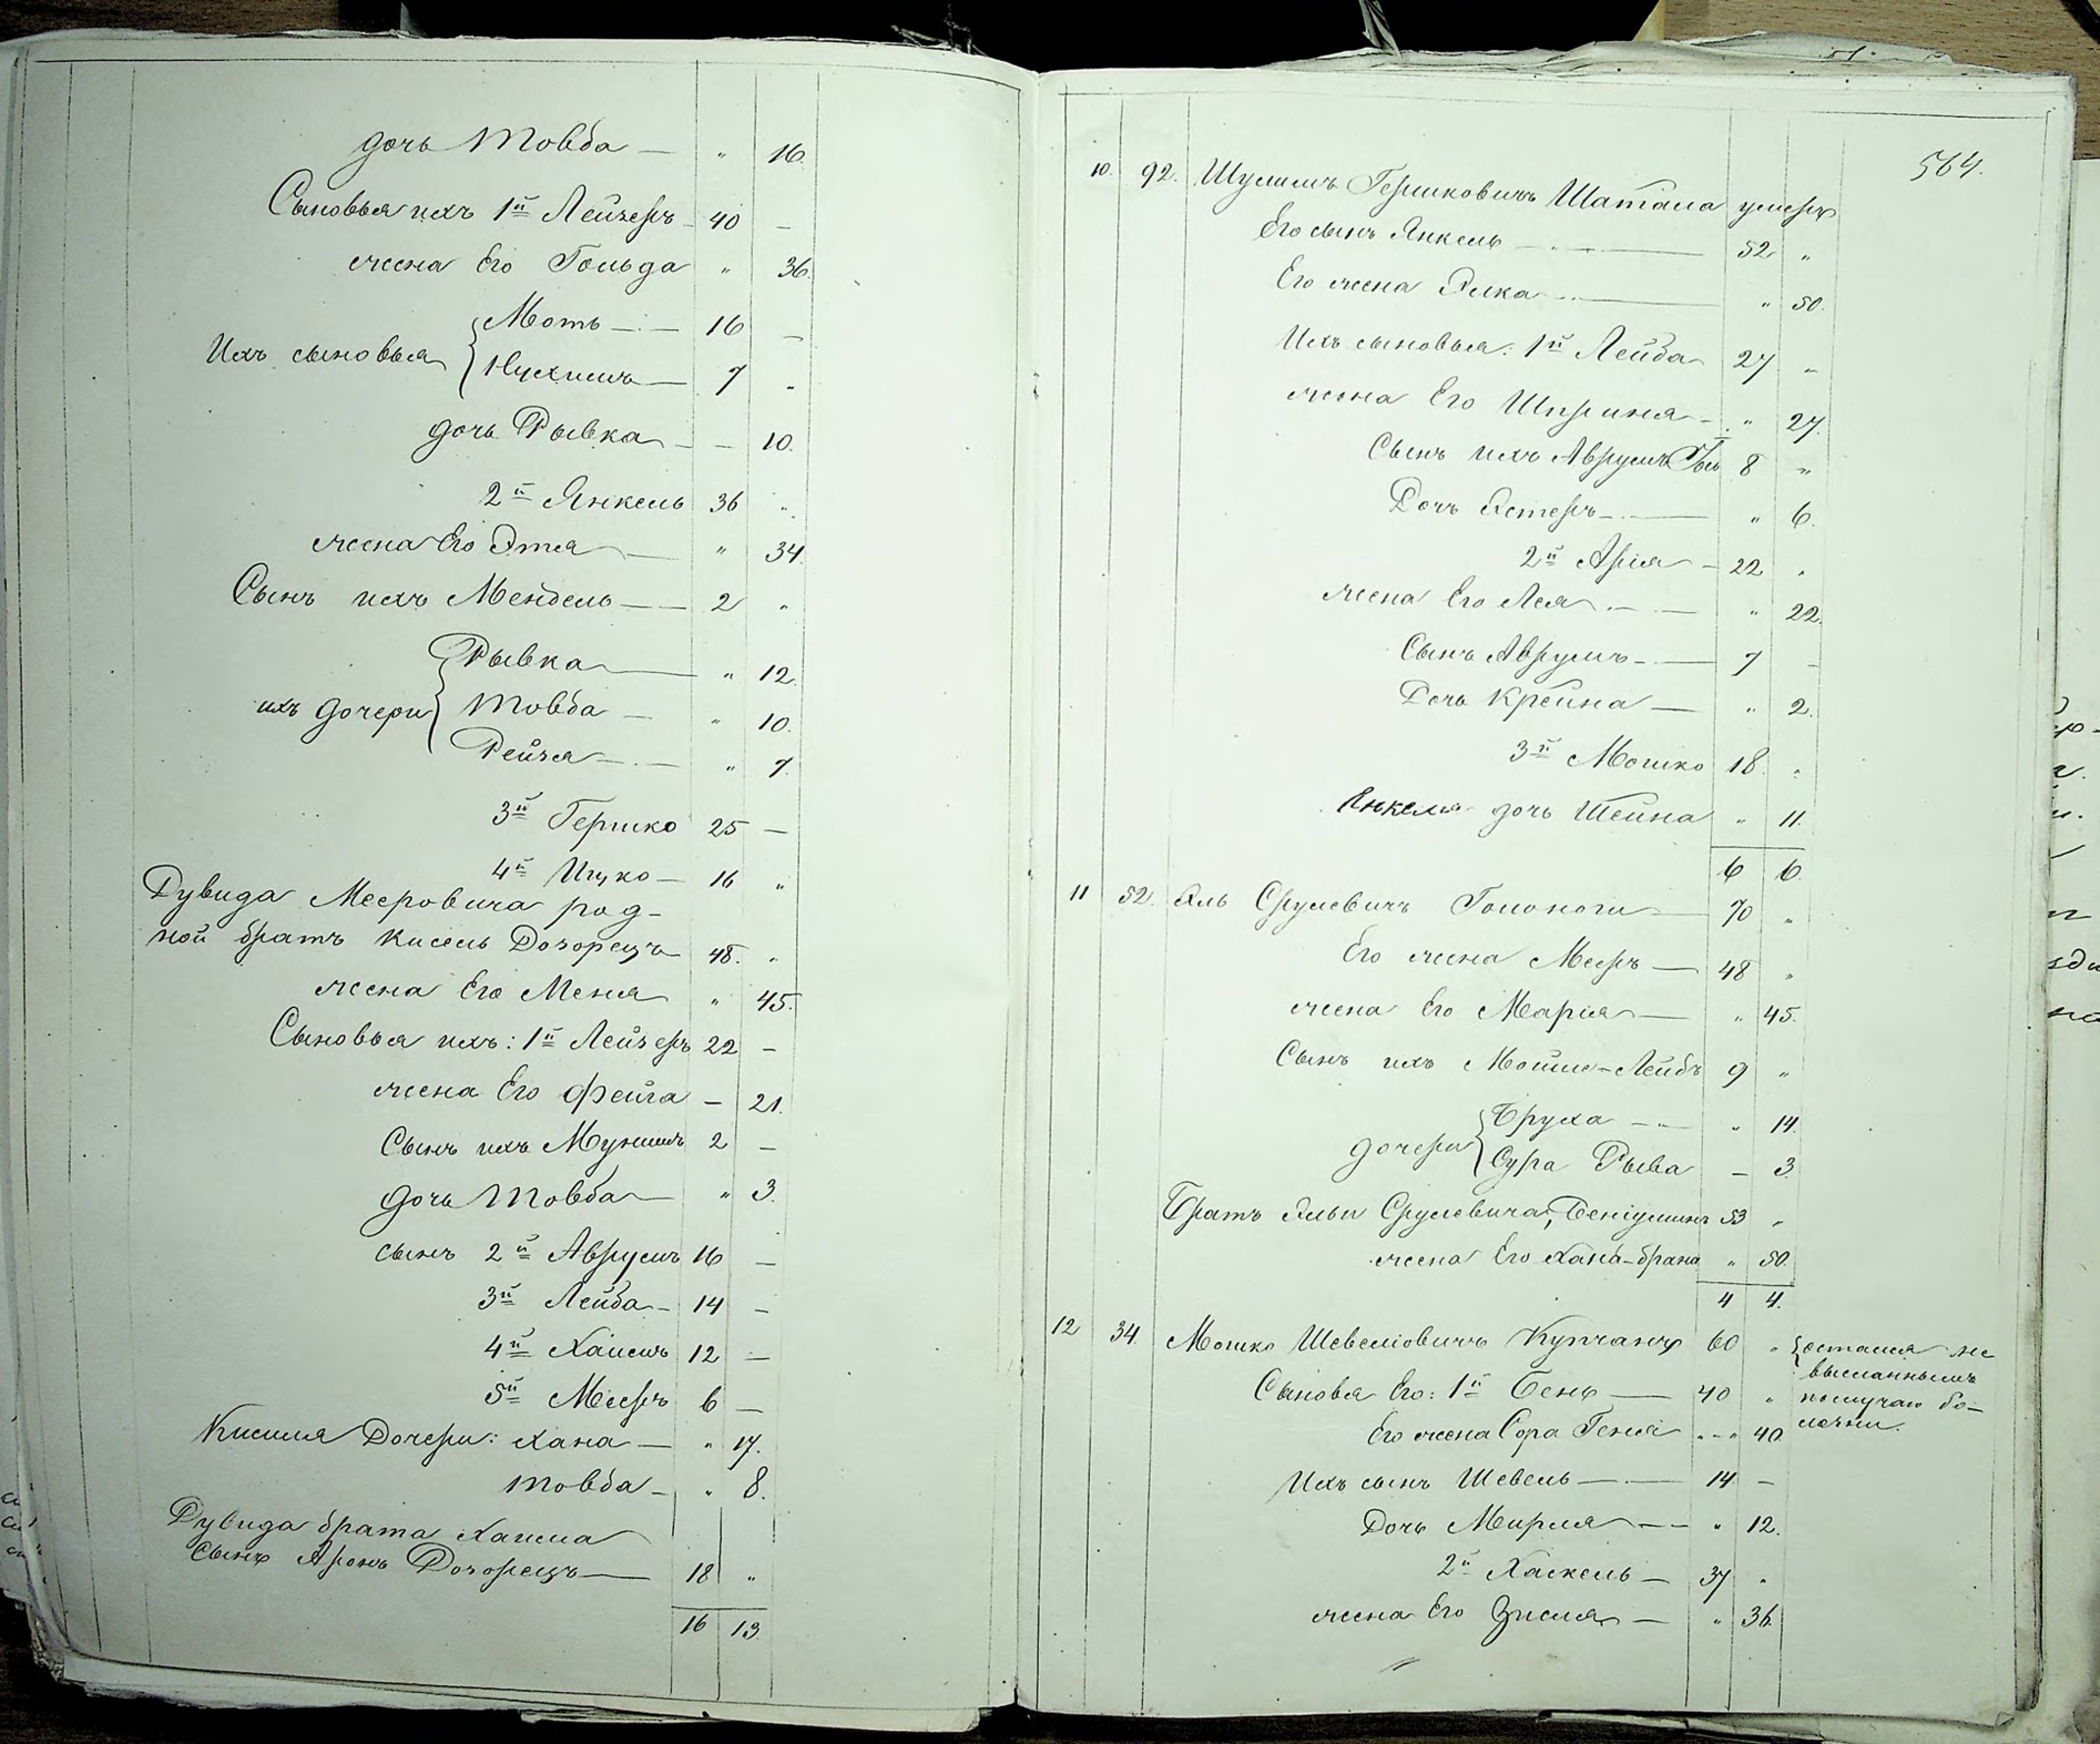 дочь Товба — " 16.
Сыновья ихъ 1й Лейзеръ 40 —
жена Его Гольда " 36.
Моть — 16 —
Ихъ сыновья
Нухимъ — 7 "
дочь Рывка — — 10.
2й Янкель 36 "
жена Его Этя — " 34.
Сынъ ихъ Мендель — 2 "
Рывка — " 12.
ихъ дочери Товба — " 10.
Рейзя — " 7.
3й Гершко 25 —
4й Ицко — 16 "
Дувида Мееровича род-
ной братъ Кисель Дозорецъ 48. "
жена Его Меня " 45.
Сыновья ихъ: 1й Лейзеръ 22 —
жена Его Фейга — 21.
Сынъ ихъ Мунишъ 2 —
дочь Товба — " 3.
сынъ 2й Аврумъ 16 —
3й Лейба — 14 —
4й Хаимъ 12 —
5й Мееръ 6 —
Кисиля Дочери: Хана — " 17.
Товба — " 8.
Дувида брата Хаима
сынъ Аронъ Дозорецъ — 18 "
16 13
564.
10. 92. Шулимъ Гершковичъ умеръ
Его сынъ Янкель — 52 "
Его жена Элка — " 50.
Ихъ сыновья: 1й Лейба 27 "
жена Его Шприня — " 27.
Сынъ ихъ Аврумъ 8 "
Дочь Эстеръ — " 6.
2й Арія — 22 "
жена Его Лея — " 22.
Сынъ Аврумъ — 7 —
Дочь Крейна — " 2.
3й Мошко 18. "
Янкеля дочь Шейна " 11.
6 6
11 52. Эль Срулевичъ Голоноги — 70 "
Его жена Мееръ — 48 "
жена Его Марія — " 45.
Сынъ ихъ Мойше-Лейбъ 9 "
Бруха — " 14.
дочери
Сура Рыва — 3.
Братъ Эльи Срулевича, Беніуминъ 53 "
жена Его Хана-брана " 50.
4 4.
12 34. Мошко Шевеліовичъ Купчанъ 60 " остался не
высланнымъ
Сыновья Его: 1й Бень — 40 " по случаю бо-
лезни.
Его жена Сора Геня " — " 40.
Ихъ сынъ Шевель — 14 —
Дочь Мирля — " 12.
2й Хаскель — 37 "
жена Его Зисля — " 36.